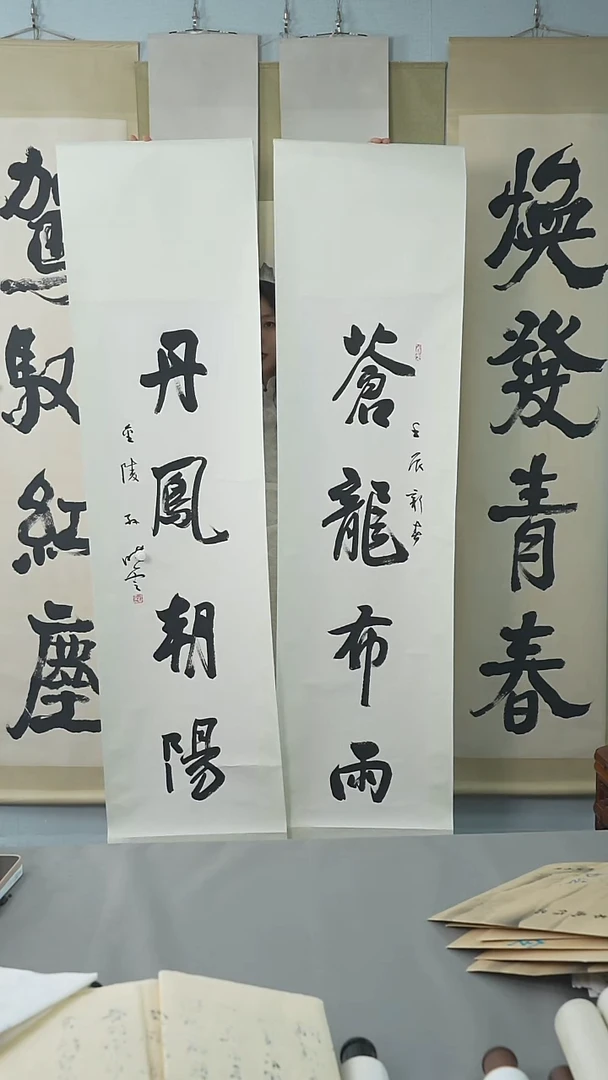 煥發青春
蒼龍布雨
壬辰新春
丹鳳朝陽
金陵孙晓云
駕馭紅塵